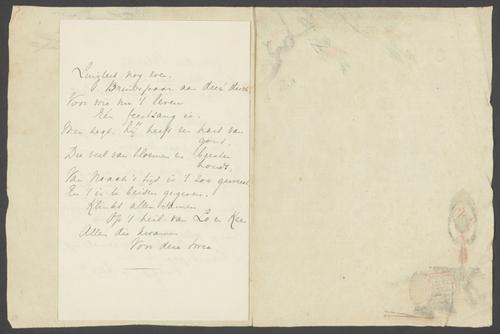 nog eens,
Bruidspaar aan deez' disch
Voor wie nu 't leven
Eén feestzang is.
Men zegt: hij heeft een hart van
goud,
Die veel van bloemen en beesten
houdt,
Van Noach's tijd is 't zoo geweest
En 't is te beiden gegeven.
Klinkt allen samen
Op 't heil van Lo en Kee
Allen die kwamen
Voor deze twee